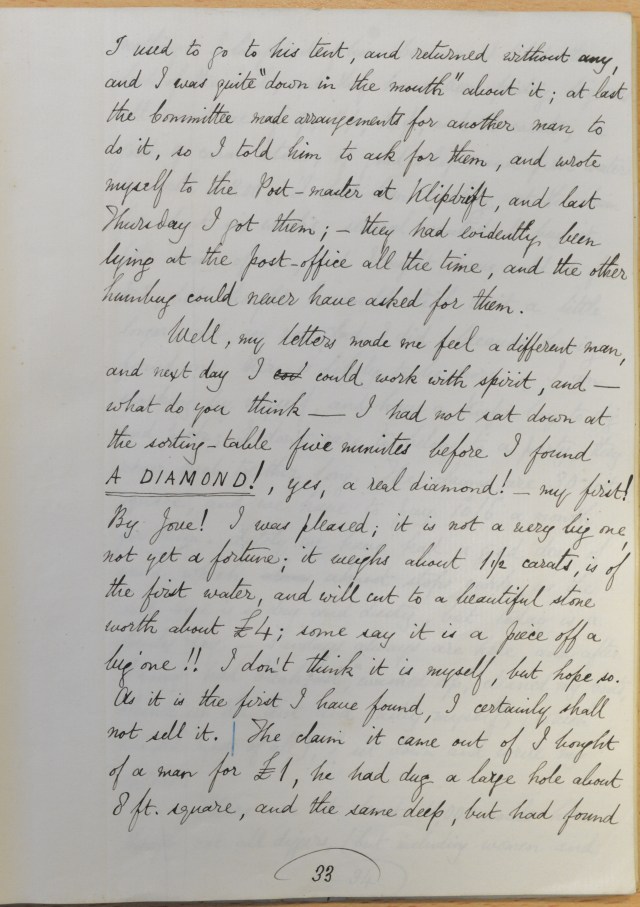 I used to go to his tent, and returned without any,
and I was quite "down in the mouth" about it; at last
the Committee made arrangements for another man to
do it, so I told him to ask for them, and wrote
myself to the Post-master at Klipdrift, and last
Thursday I got them; - they had evidently been
lying at the post-office all the time, and the other
humbug could never have asked for them.
Well, my letters made me feel a different man,
and next day I could work with spirit, and —
what do you think — I had not sat down at
the sorting-table five minutes before I found
A DIAMOND!, yes, a real diamond! - my first!
By Jove! I was pleased; it is not a very big one,
not yet a fortune; it weighs about 1 1/2 carats, is of
the first water, and will cut to a beautiful stone
worth about £4; some say it is a piece off a
big one!! I don't think it is myself, but hope so.
As it is the first I have found, I certainly shall
not sell it. The claim it came out of I bought
of a man for £1, he had dug a large hole about
8 ft. square, and the same deep, but had found
33